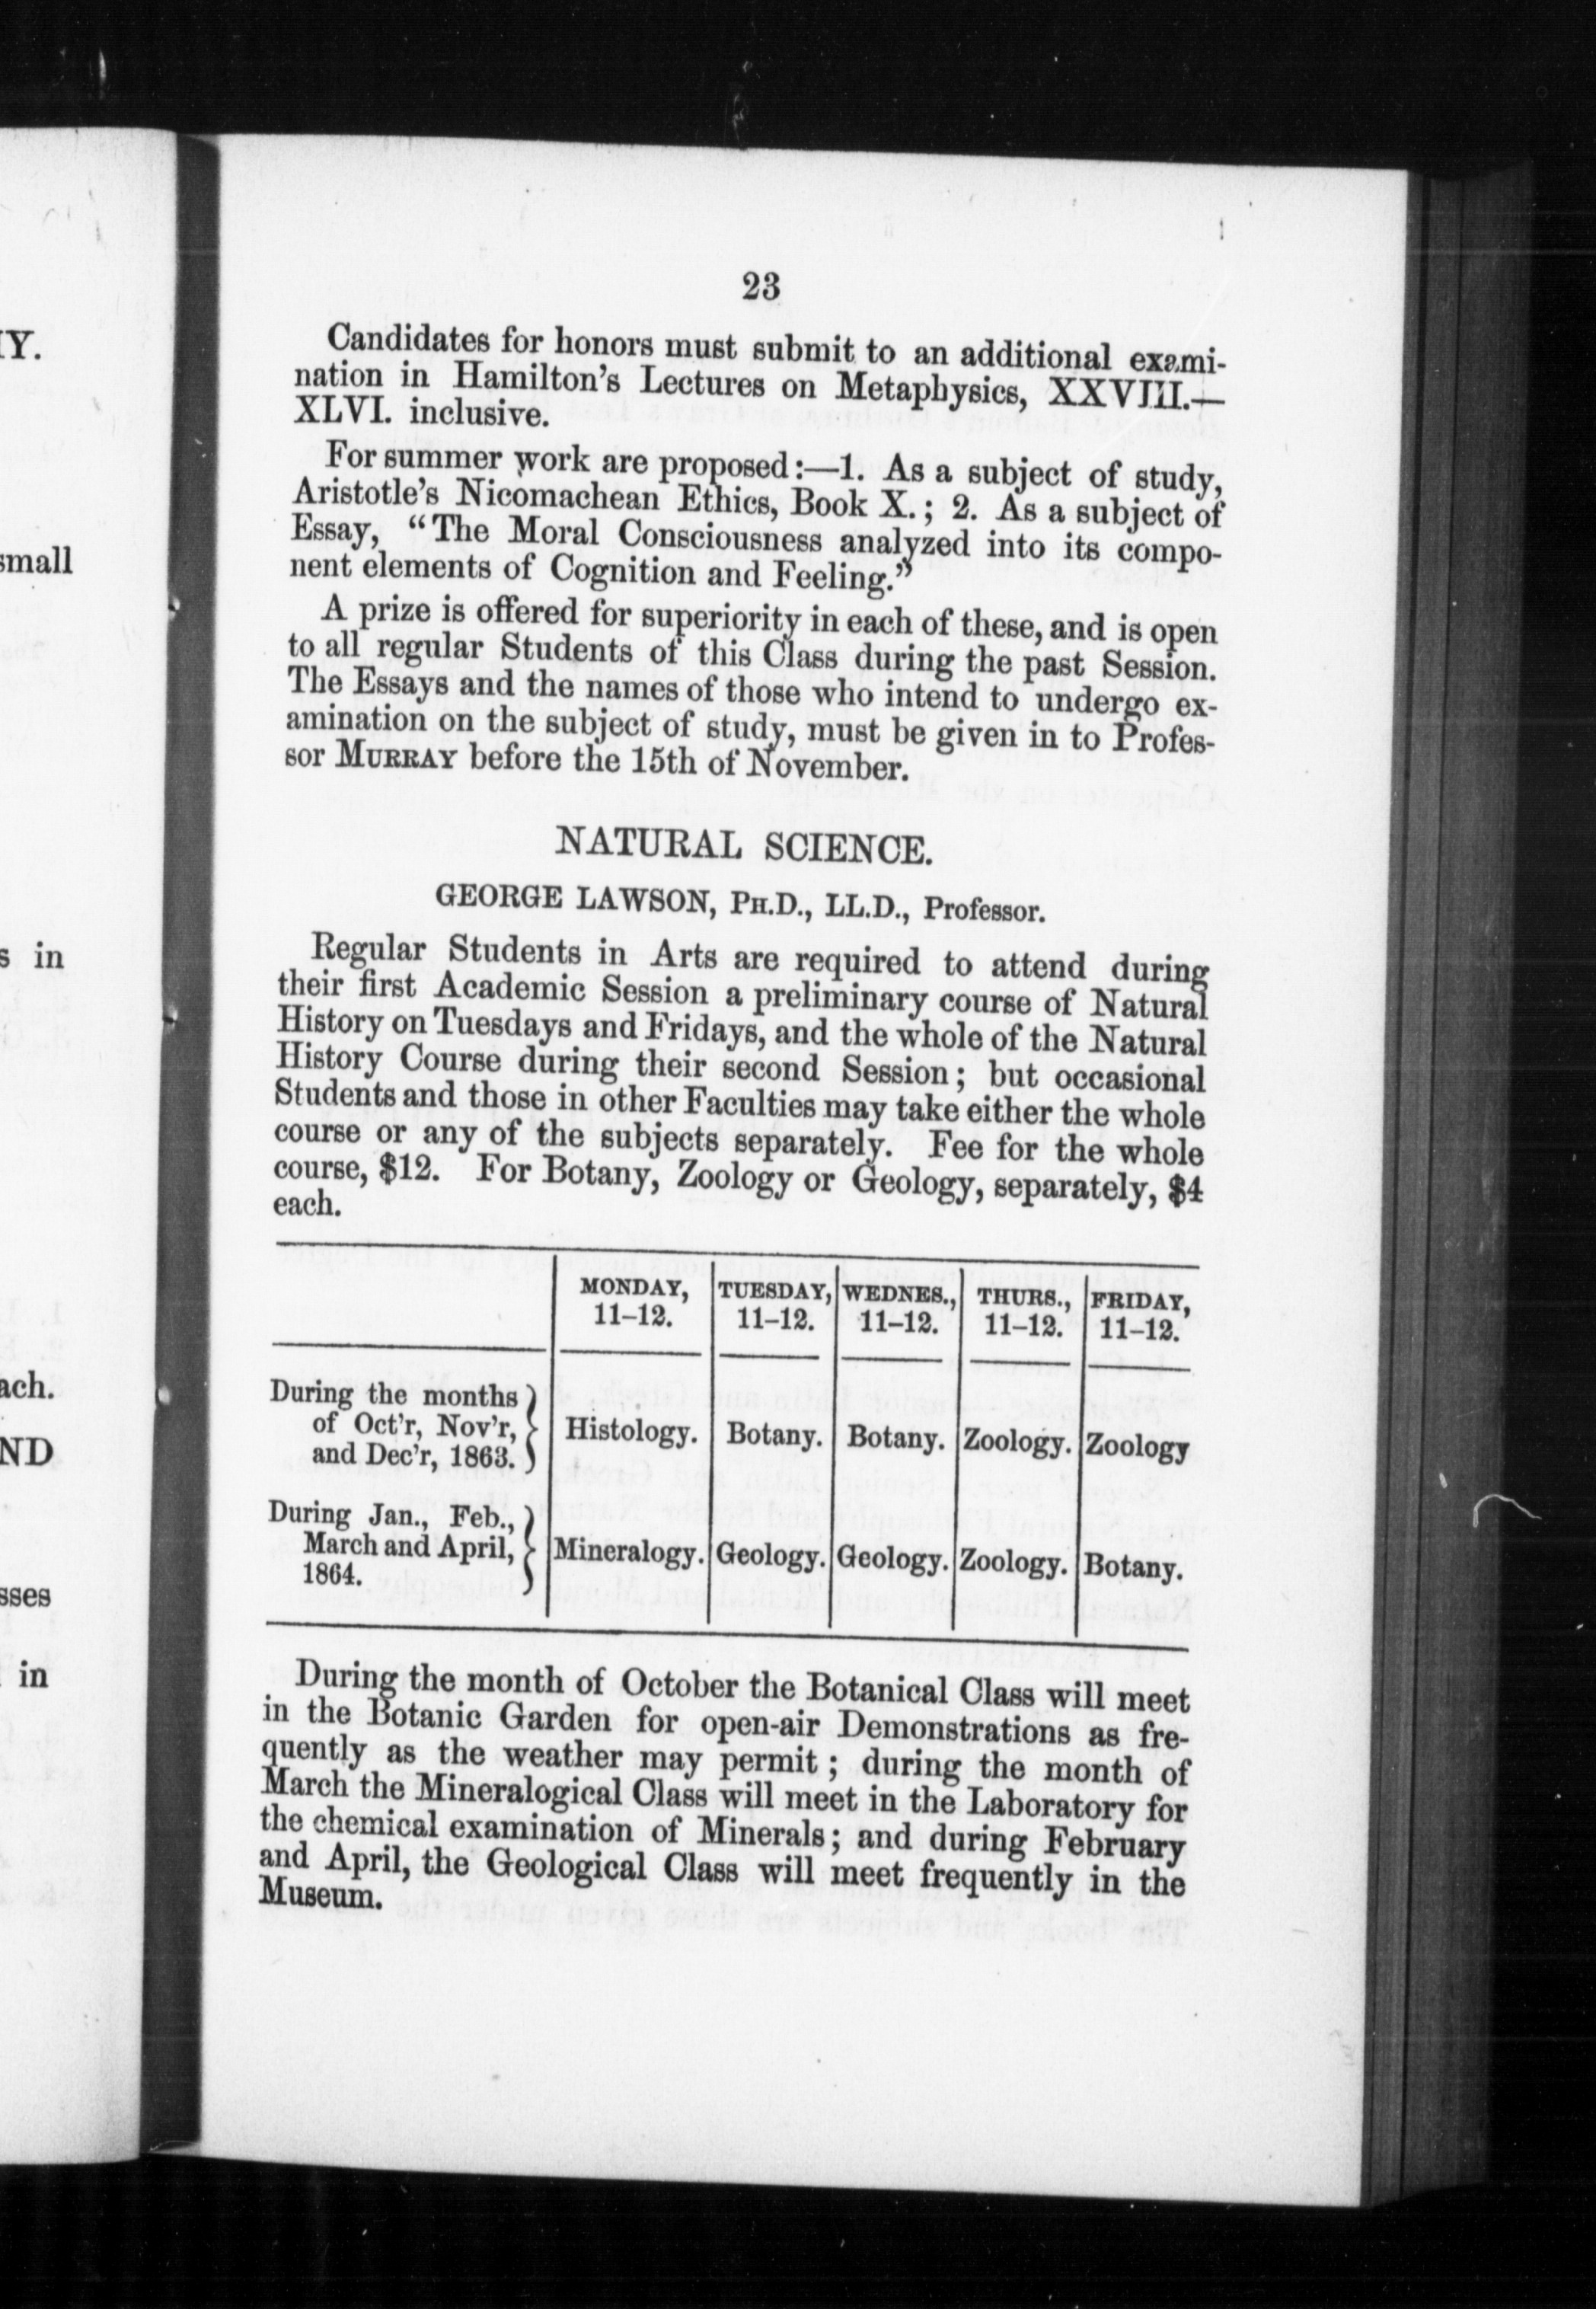 IY.
small
s in
ach.
ND
sses
in
23
Candidates for honors must submit to an additional exami-
nation in Hamilton's Lectures on Metaphysics, XXVIII.—
XLVI. inclusive.
For summer work are proposed:—1. As a subject of study,
Aristotle's Nicomachean Ethics, Book X.; 2. As a subject of
Essay, “The Moral Consciousness analyzed into its compo-
nent elements of Cognition and Feeling.”
A prize is offered for superiority in each of these, and is open
to all regular Students of this Class during the past Session.
The Essays and the names of those who intend to undergo ex-
amination on the subject of study, must be given in to Profes-
sor MURRAY before the 15th of November.
NATURAL SCIENCE.
GEORGE LAWSON, PH.D., LL.D., Professor.
Regular Students in Arts are required to attend during
their first Academic Session a preliminary course of Natural
History on Tuesdays and Fridays, and the whole of the Natural
History Course during their second Session; but occasional
Students and those in other Faculties may take either the whole
course or any of the subjects separately. Fee for the whole
course, $12. For Botany, Zoology or Geology, separately, $4
each.
MONDAY, TUESDAY, WEDNES., THURS., FRIDAY,
11–12. 11–12. 11–12. 11–12. 11–12.
During the months
of Oct'r, Nov'r, Histology. Botany. Botany. Zoology. Zoology
and Dec'r, 1863.
During Jan., Feb.,
March and April, Mineralogy. Geology. Geology. Zoology. Botany.
1864.
During the month of October the Botanical Class will meet
in the Botanic Garden for open-air Demonstrations as fre-
quently as the weather may permit; during the month of
March the Mineralogical Class will meet in the Laboratory for
the chemical examination of Minerals; and during February
and April, the Geological Class will meet frequently in the
Museum.